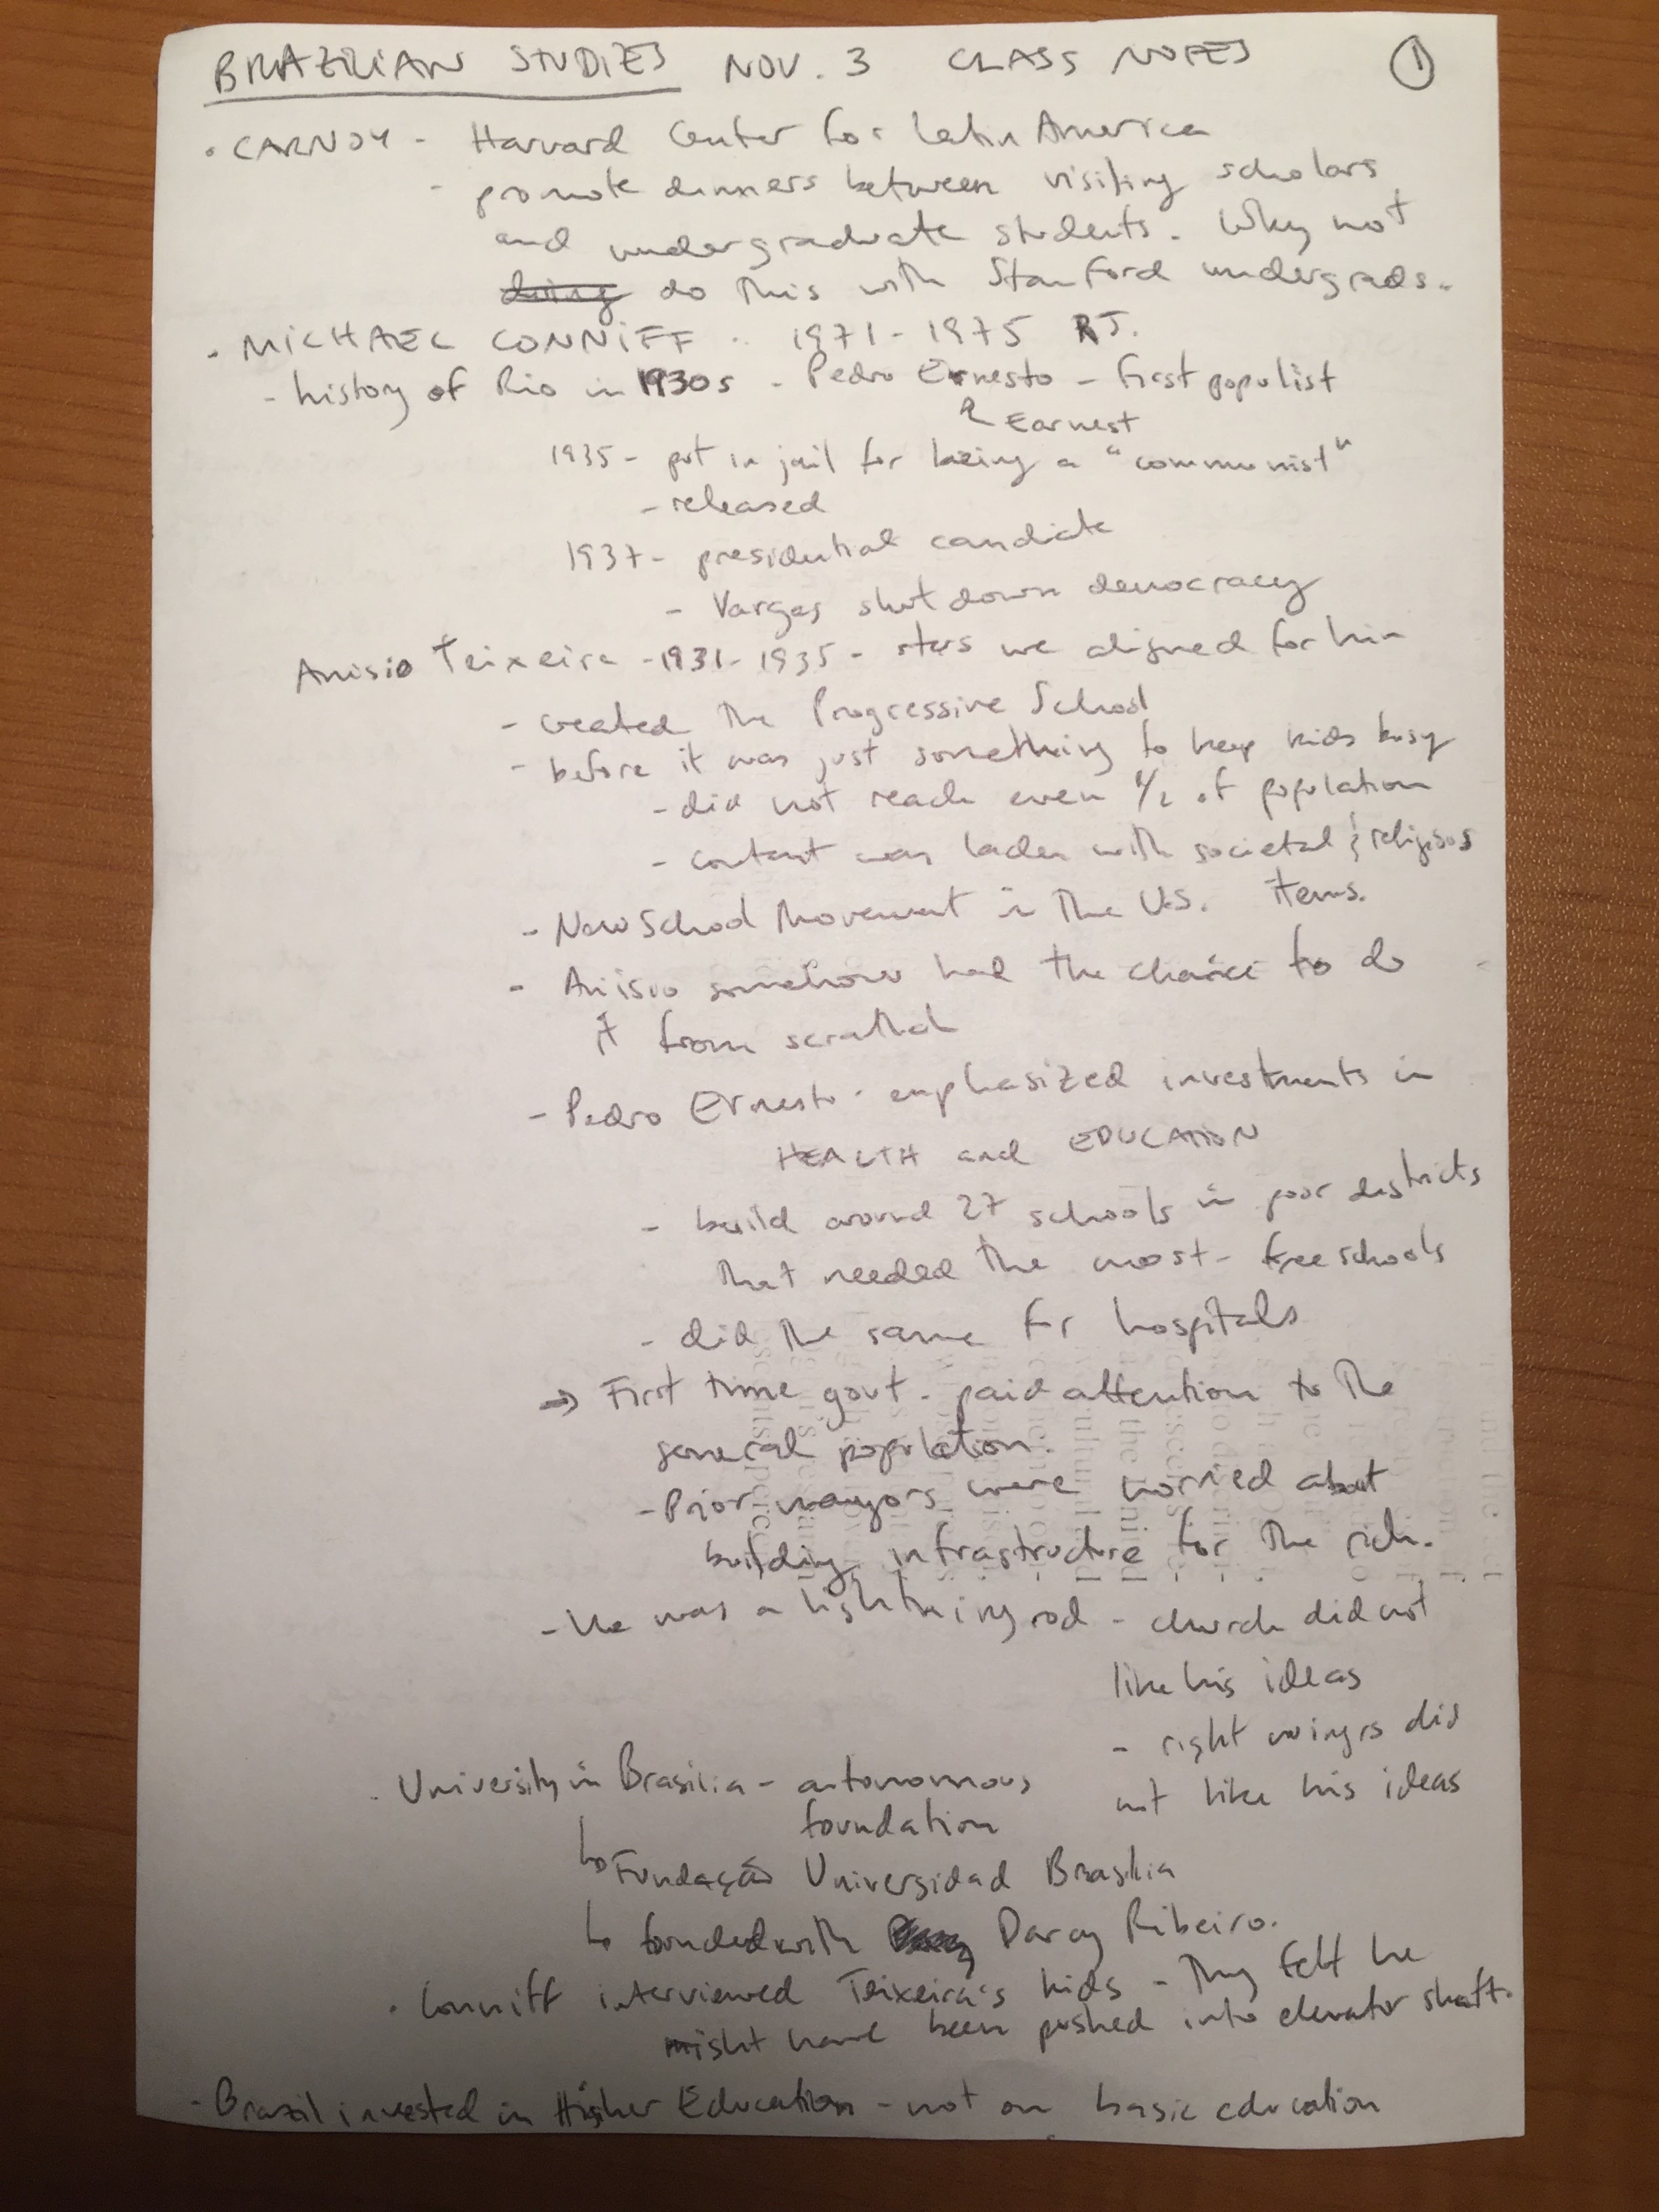 BRAZILIAN STUDIES NOV. 3 CLASS NOTES ①
• CARNOY - Harvard Center for Latin America
- promote dinners between visiting scholars
and undergraduate students. Why not
doing do this with Stanford undergrads.
- MICHAEL CONNIFF - 1971-1975 RJ.
- history of Rio in 1930s - Pedro Ernesto - first populist
Earnest
1935 - put in jail for being a "communist"
- released
1937 - presidential candidate
- Vargas shut down democracy
Anisio Teixeira - 1931-1935 - stars we aligned for him
- created the Progressive School
- before it was just something to keep kids busy
- did not reach even 1/2 of population
- content was laden with societal & religious
- New School Movement in the U.S. items.
- Anisio somehow had the chance to do
it from scratch
- Pedro Ernesto - emphasized investments in
HEALTH and EDUCATION
- build around 27 schools in poor districts
that needed the most - free schools
- did the same for hospitals
→ First time govt. paid attention to the
general population.
- Prior mayors were worried about
building infrastructure for the rich.
- He was a lightning rod - church did not
like his ideas
- right wingrs did
not like his ideas
• University in Brasilia - autonomous
foundation
↳ Fundação Universidad Brasilia
↳ founded with Darcy Ribeiro.
• Conniff interviewed Teixeira's kids - They felt he
might have been pushed into elevator shaft.
- Brazil invested in Higher Education - not on basic education